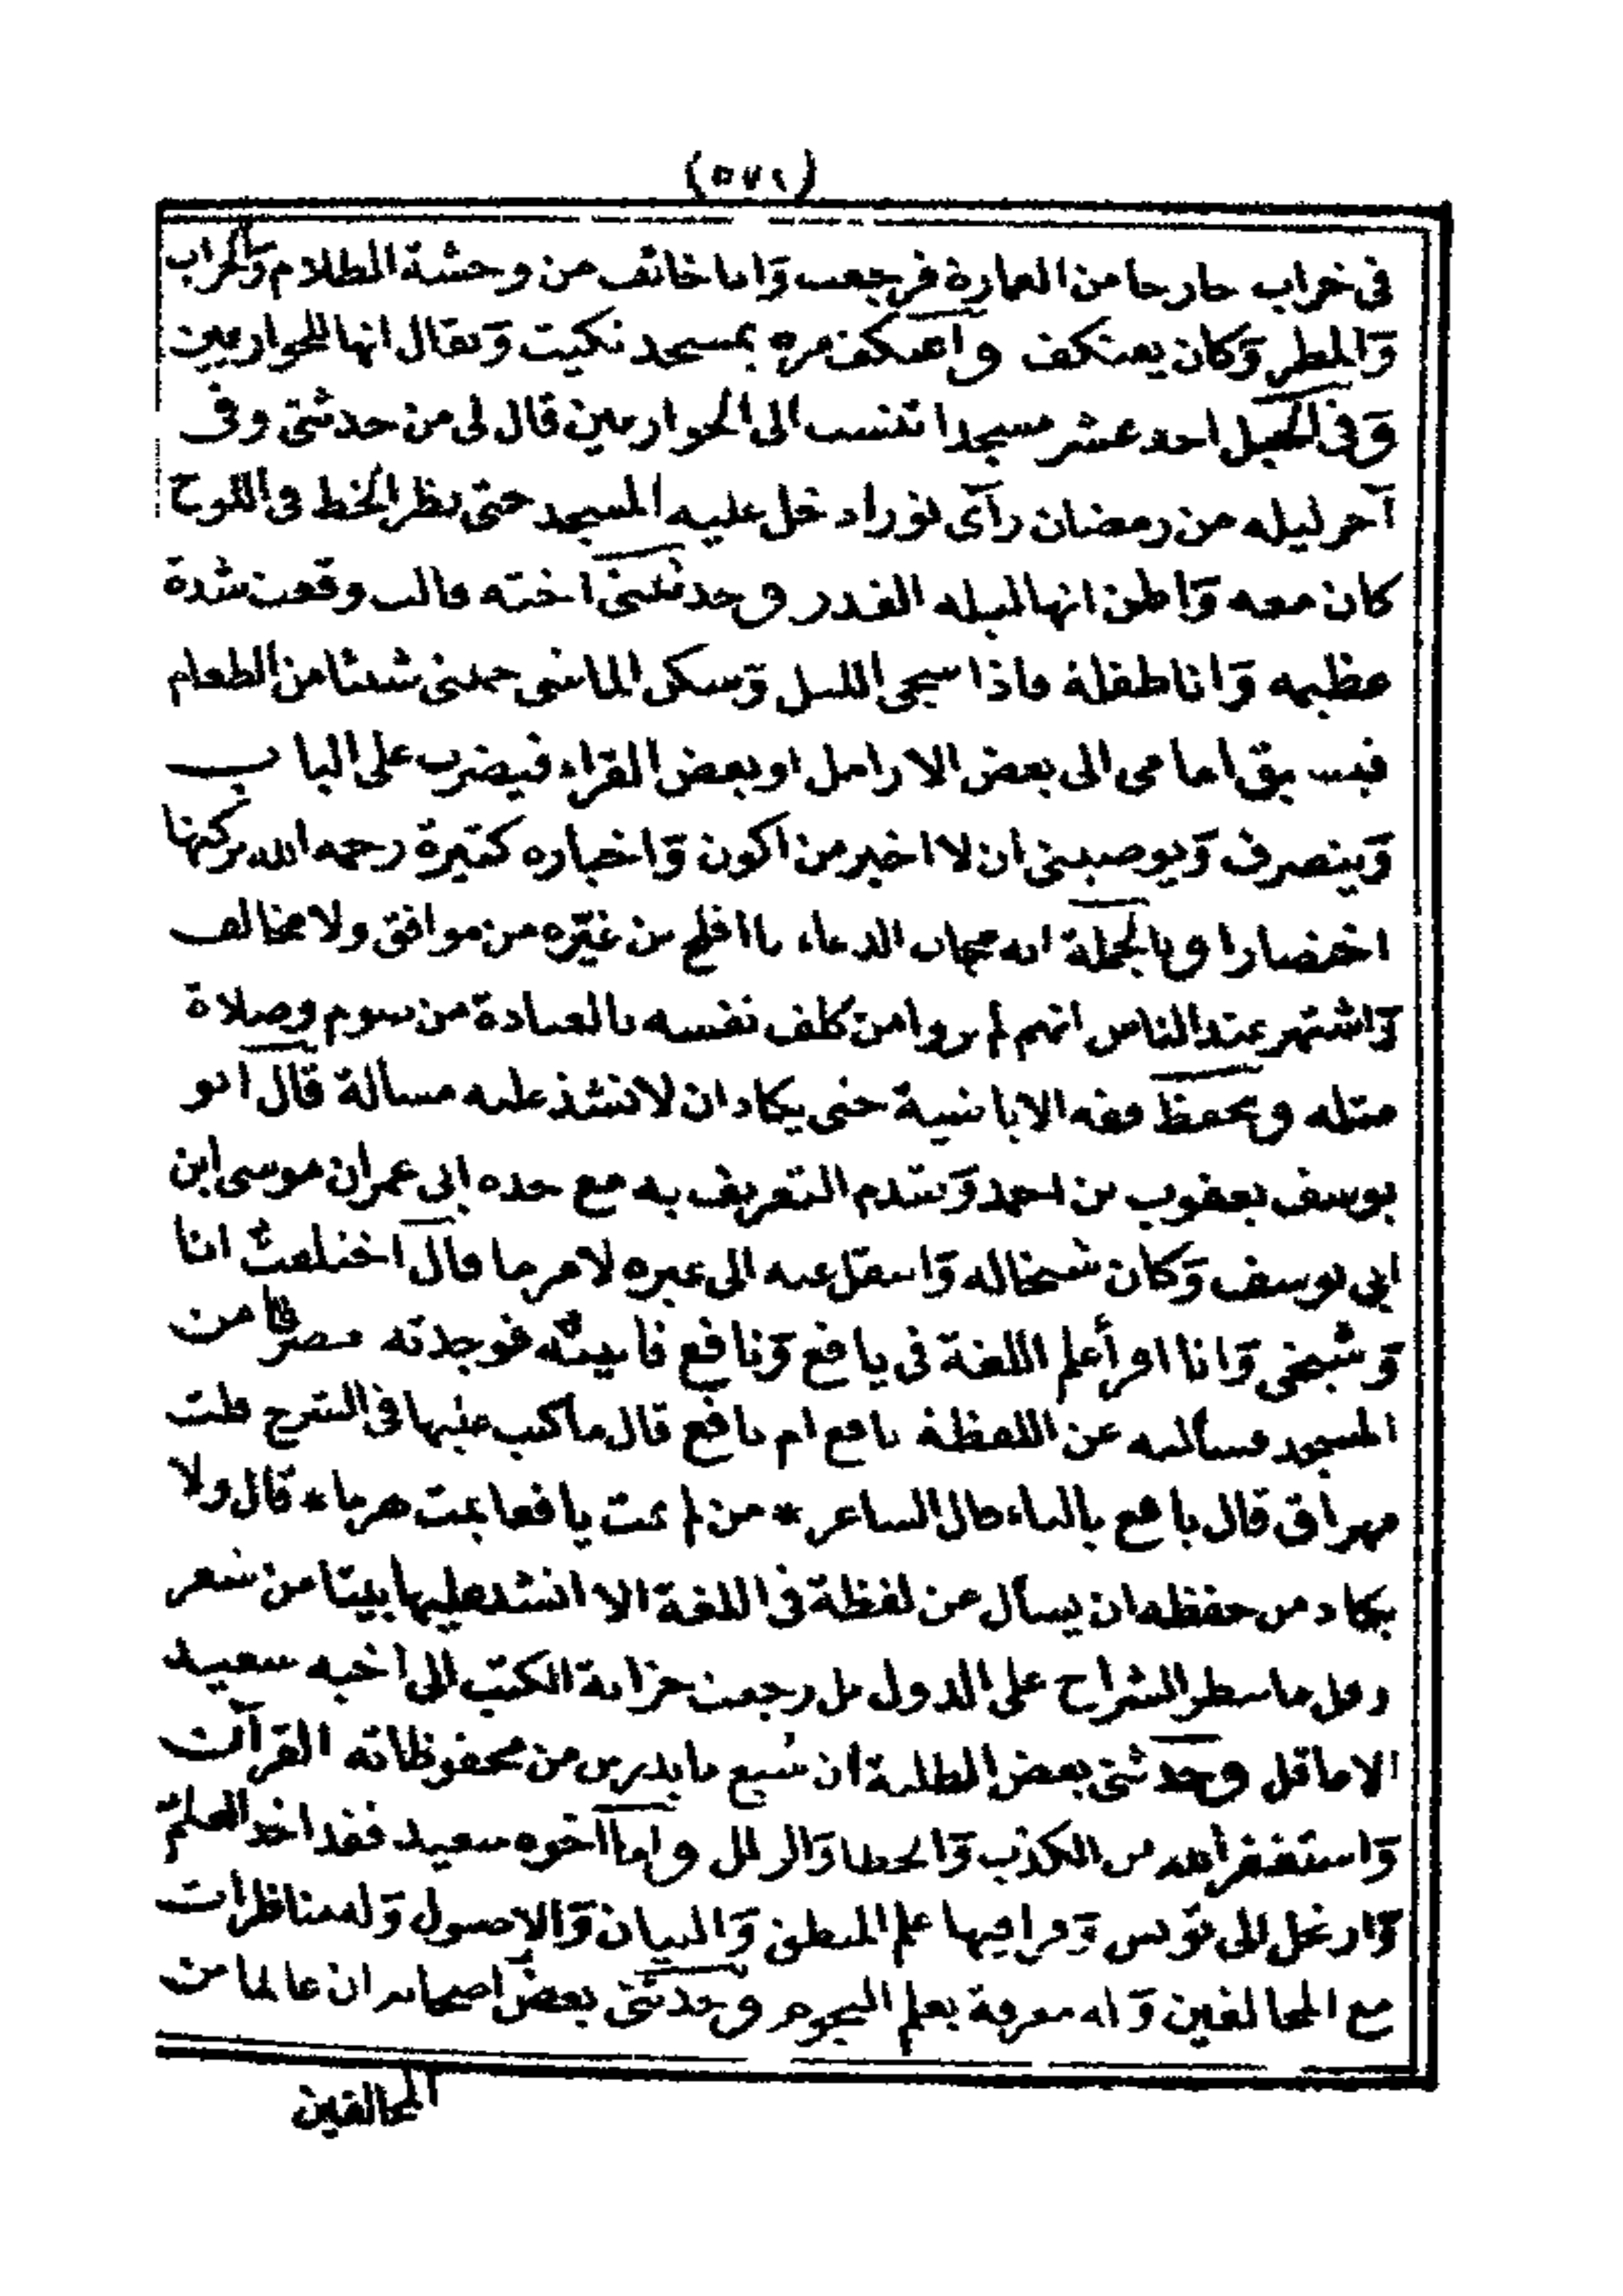 (٥٧١)
فى خراب خارجا من العمارة فرجعت وَانا خائف من وحشة الظلام وَالخراب
وَالمطر وَكان يعتكف واعتكف مرة بمسجد تكيت وَيقال انها للحواريين
وَفى الجبل احد عشر مسجدا تنسب الى الحواريين قال لى من حدثنى وفى
آخر ليله من رمضان رآى نورا دخل عليه المسجد حتى نظر الخط فى اللوح
كان معه وَاظن انها ليله القدر وحدثتنى اخته قالت وقعت شدة
عظيمه وَانا طفلة فاذا سجى الليل وَسكن الماشى حملنى شيئا من الطعام
فيسبق امامى الى بعض الارامل او بعض القراء فيضرب على الباب
وَينصرف وَيوصينى ان لا اخبر من اكون وَاخباره كثيرة رحمه الله تركتها
اختصارا وبالجملة انه مجاب الدعاء ما افلح من غيّره من موافق ولا مخالف
وَاشتهر عند الناس انهم لم يروا من كلف نفسه بالعبادة من صوم وصلاة
مثله ويحفظ فقه الاباضية حتى يكاد ان لا تشذ عليه مسألة قال ابو
يوسف يعقوب بن احمد وَتقدم التعريف به مع جده ابى عمران موسى ابن
ابى يوسف وَكان شيخا له وَانتقل عنه الى غيره لامر ما قال اختلفت انا
وَشيخى وَانا اقرأ علم اللغة فى يافع وَنافع فاتيته فوجدته منصرفا من
المسجد فسألته عن اللفظة نافع ام يافع قال ما كتب عليها فى الشرح قلت
مهراق قال يافع بالياء قال الشاعر * من لم يمت يافعا يمت هرما * قال ولا
يكاد من حفظه ان يسأل عن لفظة فى اللغة الا انشد عليها بيتا من شعر
وقل ما سطر الشراح على الدول بل رجعت خزانة الكتب الى اخيه سعيد
الا ما قل وحدثنى بعض الطلبة ان سُبع ما يدرس من محفوظاته القرآن
وَاستغفر الله من الكذب وَالخطا وَالزلل واما اخوه سعيد فقد اخذ العلم
وَارتحل الى تونس وَقرا فيها علم المنطق وَالبيان وَالاصول وَله مناظرات
مع المخالفين وَله معرفة بعلم النجوم وحدثنى بعض اصحابه ان عالما من
المخالفين